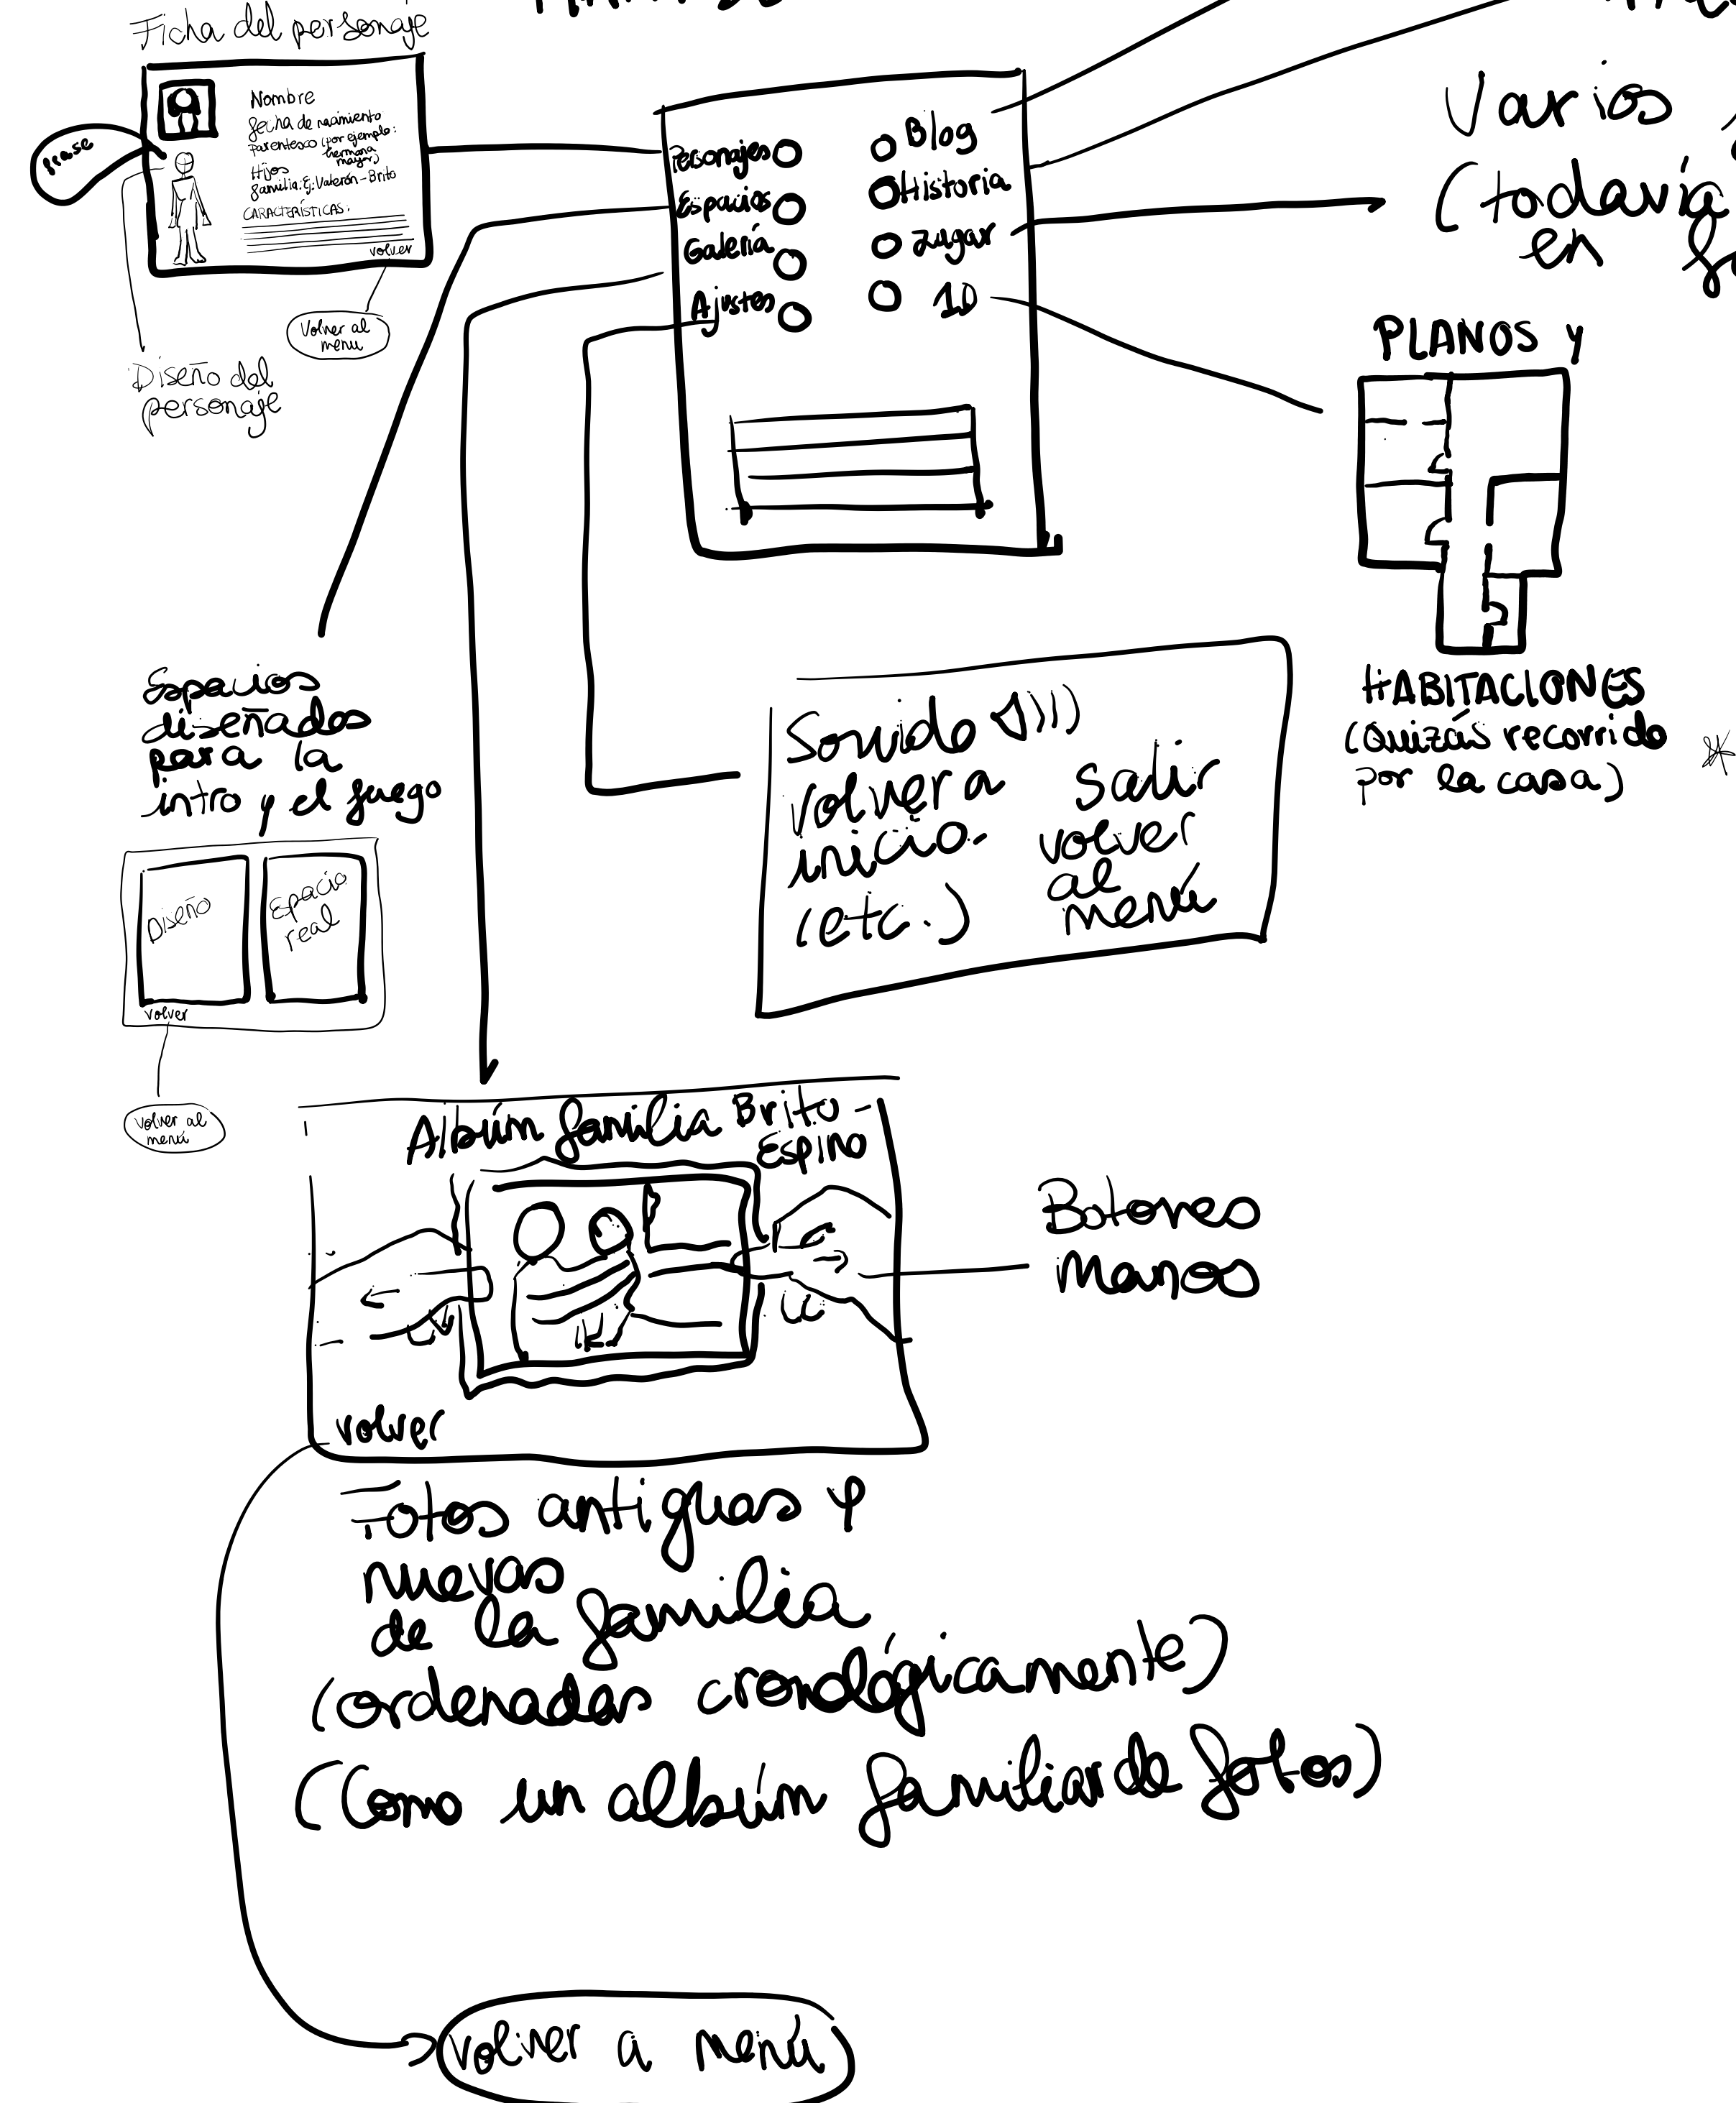 Ficha del personaje
frase
Nombre
fecha de nacimiento
parentesco (por ejemplo:
hermana
mayor)
Hijos
familia. Ej: Valerón-Brito
CARACTERÍSTICAS:
volver
Volver al
menu
Diseño del
personaje
Personajes
Espacios
Galería
Ajustes
Blog
Historia
Jugar
10
Varios
(todavía
en
PLANOS Y
HABITACIONES
(Quizás recorrido
por la casa)
Espacios
diseñados
para la
intro y el juego
Diseño
Espacio
real
volver
volver al
menú
Sonido
Volver a
inicio.
(etc.)
Salir
volver
al
menú
Albúm familia Brito-
Espino
Botones
manos
volver
Fotos antiguas y
nuevas
de la familia
(ordenadas cronológicamente)
(Como un albúm familiar de fotos)
Volver a menú